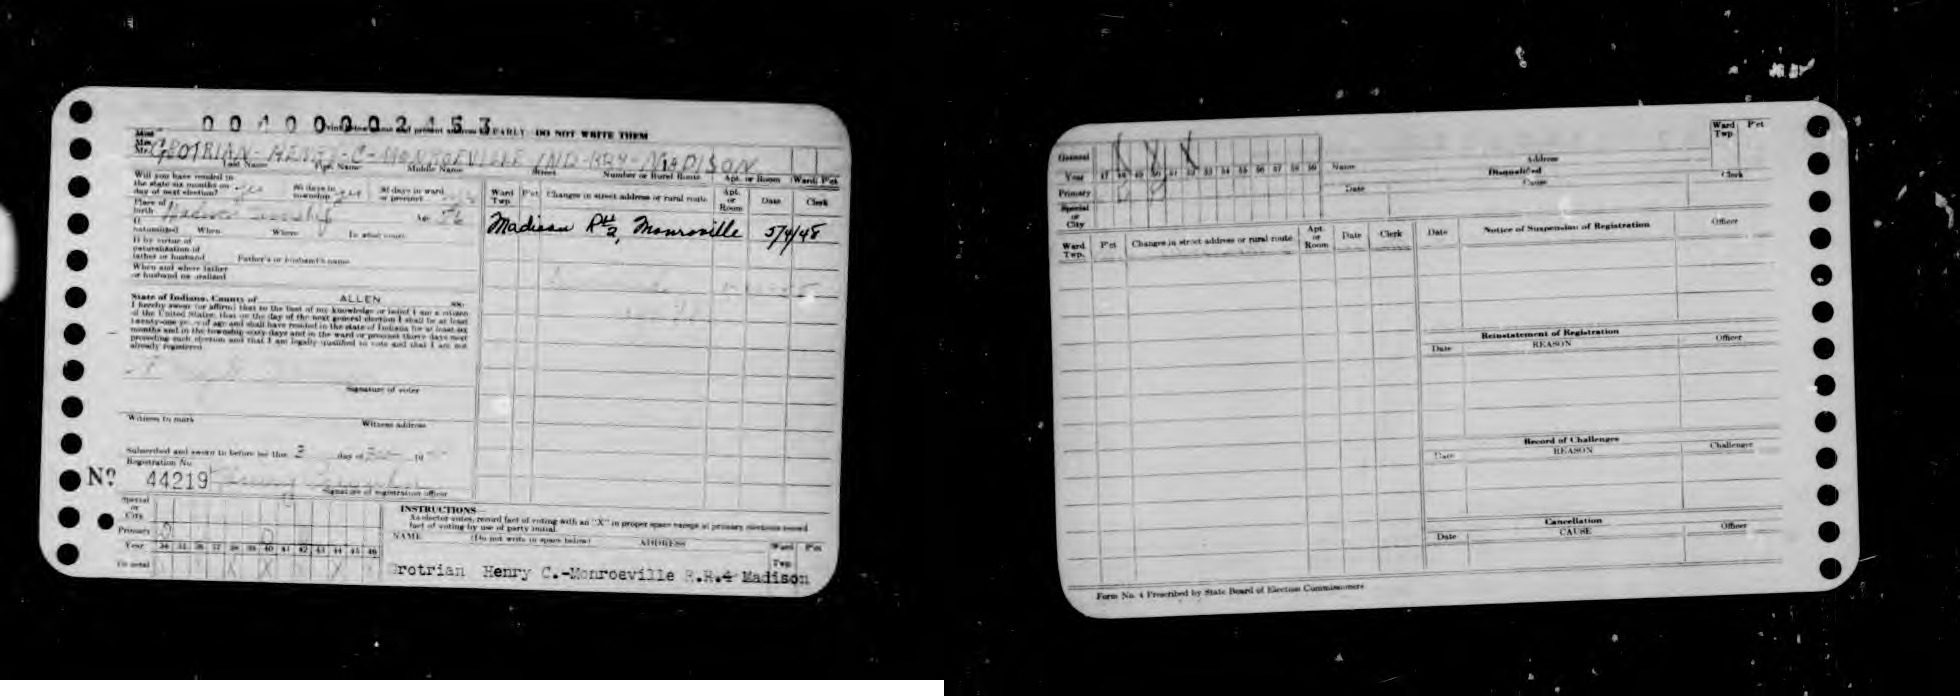 0040000002453
Print your name and present address CLEARLY DO NOT WRITE THEM
Miss
Mrs.
Mr. GROTRIAN-HENRY-C-MONROEVILLE IND-RR4-MADISON
Last Name First Name Middle Name Street Number or Rural Route Apt. or Room Ward P'ct
Will you have resided in
the state six months on
day of next election? yes 60 days in township yes 30 days in ward or precinct
Place of
birth Madison Township Age 56
If
naturalized When Where In what court
If by virtue of
naturalization of
father or husband Father's or husband's name
When and where father
or husband naturalized
State of Indiana, County of ALLEN ss:
I hereby swear (or affirm) that to the best of my knowledge or belief I am a citizen
of the United States; that on the day of the next general election I shall be at least
twenty-one years of age and shall have resided in the state of Indiana for at least six
months and in the township sixty days and in the ward or precinct thirty days next
preceding such election and that I am legally qualified to vote and that I am not
already registered
Signature of voter
Witness to mark Witness address
Subscribed and sworn to before me this 3 day of 19
Registration No.
Nº 44219
Signature of registration officer
Ward Twp. P'ct Changes in street address or rural route Apt. or Room Date Clerk
Madison Rt 2, Monroeville 5/4/48
Special
or
City
Primary D D
Year 34 35 36 37 38 39 40 41 42 43 44 45 46
General X X X
INSTRUCTIONS
As elector votes, record fact of voting with an "X" in proper space except at primary elections record
fact of voting by use of party initial.
NAME (Do not write in space below) ADDRESS Ward Twp. P'ct
Grotrian Henry C.-Monroeville R.R.4 Madison
General X X X
Year 47 48 49 50 51 52 53 54 55 56 57 58 59
Primary
Special
or
City
Name Address Ward Twp. P'ct
Disqualified
Date Cause Clerk
Ward Twp. P'ct Changes in street address or rural route Apt. or Room Date Clerk
Date Notice of Suspension of Registration Officer
Reinstatement of Registration
Date REASON Officer
Record of Challenges
Date REASON Challenger
Cancellation
Date CAUSE Officer
Form No. 4 Prescribed by State Board of Election Commissioners